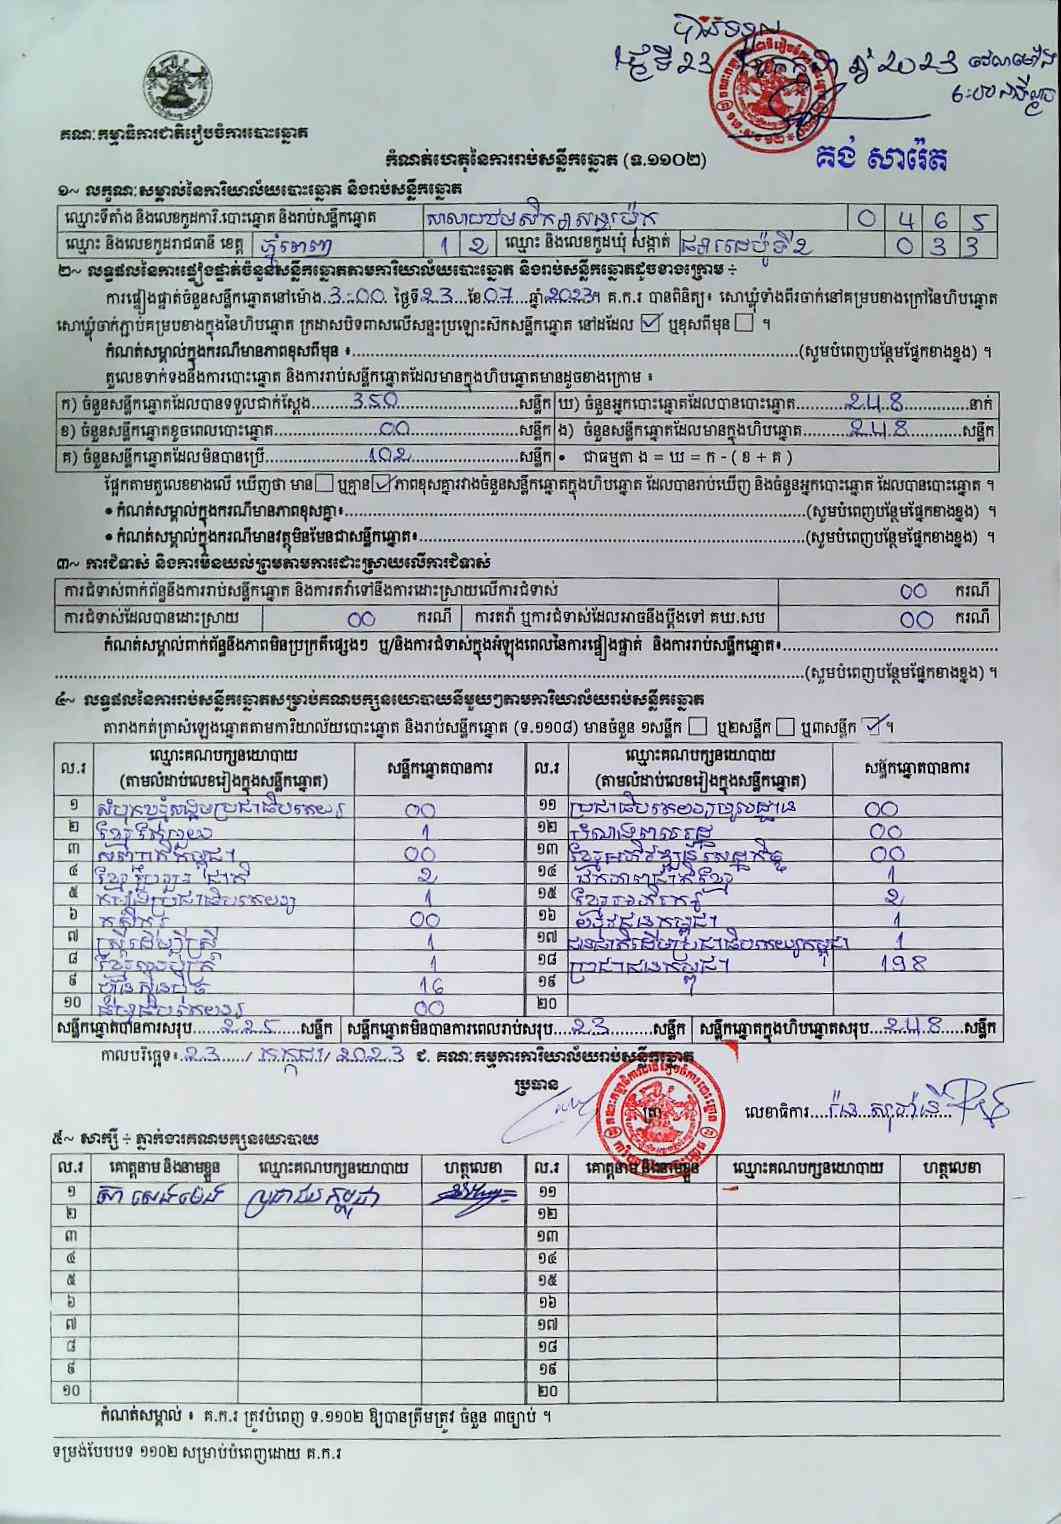 បានទទួល
ថ្ងៃទី 23 ខែកក្កដា ឆ្នាំ 2023 វេលាម៉ោង
៦:៤០នាទីល្ងាច
គង់ សារ៉េត
គណៈកម្មាធិការជាតិរៀបចំការបោះឆ្នោត
កំណត់ហេតុនៃការរាប់សន្លឹកឆ្នោត (ទ.១១០២)
១~ លក្ខណៈសម្គាល់នៃការិយាល័យបោះឆ្នោត និងរាប់សន្លឹកឆ្នោត
ឈ្មោះទីតាំង និងលេខកូដការិ.បោះឆ្នោត និងរាប់សន្លឹកឆ្នោត សាលាបឋមសិក្សាសន្ធរម៉ុក 0 4 6 5
ឈ្មោះ និងលេខកូដរាជធានី ខេត្ត ភ្នំពេញ 1 2 ឈ្មោះ និងលេខកូដឃុំ សង្កាត់ ផ្សារដេប៉ូទី2 0 3 3
២~ លទ្ធផលនៃការផ្ទៀងផ្ទាត់ចំនួនសន្លឹកឆ្នោតតាមការិយាល័យបោះឆ្នោត និងរាប់សន្លឹកឆ្នោតដូចខាងក្រោម ÷
ការផ្ទៀងផ្ទាត់ចំនួនសន្លឹកឆ្នោតនៅម៉ោង 3:00 ថ្ងៃទី 23 ខែ 07 ឆ្នាំ 2023។ គ.ក.រ បានពិនិត្យ៖ សោឃ្លុំទាំងពីរចាក់នៅគម្របខាងក្រៅនៃហិបឆ្នោត
សោឃ្លុំចាក់ភ្ជាប់គម្របខាងក្នុងនៃហិបឆ្នោត ក្រដាសបិទពាសលើសន្ទះប្រឡោះស៊កសន្លឹកឆ្នោត នៅដដែល ☑ ឬខុសពីមុន ☐ ។
កំណត់សម្គាល់ក្នុងករណីមានភាពខុសពីមុន ៖ (សូមបំពេញបន្ថែមផ្នែកខាងខ្នង) ។
តួលេខទាក់ទងនឹងការបោះឆ្នោត និងការរាប់សន្លឹកឆ្នោតដែលមានក្នុងហិបឆ្នោតមានដូចខាងក្រោម ៖
ក) ចំនួនសន្លឹកឆ្នោតដែលបានទទួលជាក់ស្តែង 350 សន្លឹក ឃ) ចំនួនអ្នកបោះឆ្នោតដែលបានបោះឆ្នោត 248 នាក់
ខ) ចំនួនសន្លឹកឆ្នោតខូចពេលបោះឆ្នោត 00 សន្លឹក ង) ចំនួនសន្លឹកឆ្នោតដែលមានក្នុងហិបឆ្នោត 248 សន្លឹក
គ) ចំនួនសន្លឹកឆ្នោតដែលមិនបានប្រើ 102 សន្លឹក • ជាធម្មតា ង = ឃ = ក - ( ខ + គ )
ផ្អែកតាមតួលេខខាងលើ ឃើញថា មាន ☐ ឬគ្មាន ☑ ភាពខុសគ្នារវាងចំនួនសន្លឹកឆ្នោតក្នុងហិបឆ្នោត ដែលបានរាប់ឃើញ និងចំនួនអ្នកបោះឆ្នោត ដែលបានបោះឆ្នោត ។
• កំណត់សម្គាល់ក្នុងករណីមានភាពខុសគ្នា៖ (សូមបំពេញបន្ថែមផ្នែកខាងខ្នង) ។
• កំណត់សម្គាល់ក្នុងករណីមានវត្ថុមិនមែនជាសន្លឹកឆ្នោត៖ (សូមបំពេញបន្ថែមផ្នែកខាងខ្នង) ។
៣~ ការជំទាស់ និងការមិនយល់ព្រមតាមការដោះស្រាយលើការជំទាស់
ការជំទាស់ពាក់ព័ន្ធនឹងការរាប់សន្លឹកឆ្នោត និងការតវ៉ាទៅនឹងការដោះស្រាយលើការជំទាស់ 00 ករណី
ការជំទាស់ដែលបានដោះស្រាយ 00 ករណី ការតវ៉ា ឬការជំទាស់ដែលអាចនឹងប្តឹងទៅ គឃ.សប 00 ករណី
កំណត់សម្គាល់ពាក់ព័ន្ធនឹងភាពមិនប្រក្រតីផ្សេងៗ ឬ/និងការជំទាស់ក្នុងអំឡុងពេលនៃការផ្ទៀងផ្ទាត់ និងការរាប់សន្លឹកឆ្នោត៖
(សូមបំពេញបន្ថែមផ្នែកខាងខ្នង) ។
៤~ លទ្ធផលនៃការរាប់សន្លឹកឆ្នោតសម្រាប់គណបក្សនយោបាយនីមួយៗតាមការិយាល័យរាប់សន្លឹកឆ្នោត
តារាងកត់ត្រាសំឡេងឆ្នោតតាមការិយាល័យបោះឆ្នោត និងរាប់សន្លឹកឆ្នោត (ទ.១១០៨) មានចំនួន ១សន្លឹក ☐ ឬ២សន្លឹក ☐ ឬ៣សន្លឹក ☑ ។
ល.រ ឈ្មោះគណបក្សនយោបាយ (តាមលំដាប់លេខរៀងក្នុងសន្លឹកឆ្នោត) សន្លឹកឆ្នោតបានការ ល.រ ឈ្មោះគណបក្សនយោបាយ (តាមលំដាប់លេខរៀងក្នុងសន្លឹកឆ្នោត) សន្លឹកឆ្នោតបានការ
១ សំបុកឃ្មុំសង្គមប្រជាធិបតេយ្យ 00 ១១ ប្រជាធិបតេយ្យមូលដ្ឋាន 00
២ ខ្មែរតែមួយ 1 ១២ បំណាងពលរដ្ឋ 00
៣ សញ្ជាតិកម្ពុជា 00 ១៣ ខ្មែរអភិវឌ្ឍន៍សេដ្ឋកិច្ច 00
៤ ខ្មែររួបរួមជាតិ 2 ១៤ ឯកភាពជាតិខ្មែរ 1
៥ កម្លាំងប្រជាធិបតេយ្យ 1 ១៥ ខ្មែរអភិរក្ស 2
៦ កសិករ 00 ១៦ យុវជនកម្ពុជា 1
៧ ស្ត្រីដើម្បីស្ត្រី 1 ១៧ ជនជាតិដើមប្រជាធិបតេយ្យកម្ពុជា 1
៨ ខ្មែរឈប់ក្រ 1 ១៨ ប្រជាជនកម្ពុជា 198
៩ ហ្វ៊ុនស៊ិនប៉ិច 16 ១៩
១០ ធម្មាធិបតេយ្យ 00 ២០
សន្លឹកឆ្នោតបានការសរុប 225 សន្លឹក សន្លឹកឆ្នោតមិនបានការពេលរាប់សរុប 23 សន្លឹក សន្លឹកឆ្នោតក្នុងហិបឆ្នោតសរុប 248 សន្លឹក
កាលបរិច្ឆេទ៖ 23 / កក្កដា / 2023 ជ. គណៈកម្មការការិយាល័យរាប់សន្លឹកឆ្នោត
ប្រធាន ត្រា លេខាធិការ
៥~ សាក្សី ÷ ភ្នាក់ងារគណបក្សនយោបាយ
ល.រ គោត្តនាម និងនាមខ្លួន ឈ្មោះគណបក្សនយោបាយ ហត្ថលេខា ល.រ គោត្តនាម និងនាមខ្លួន ឈ្មោះគណបក្សនយោបាយ ហត្ថលេខា
១ ស៊ា សេងម៉េង ប្រជាជនកម្ពុជា ១១
២ ១២
៣ ១៣
៤ ១៤
៥ ១៥
៦ ១៦
៧ ១៧
៨ ១៨
៩ ១៩
១០ ២០
កំណត់សម្គាល់ ៖ គ.ក.រ ត្រូវបំពេញ ទ.១១០២ ឱ្យបានត្រឹមត្រូវ ចំនួន ៣ច្បាប់ ។
ទម្រង់បែបបទ ១១០២ សម្រាប់បំពេញដោយ គ.ក.រ